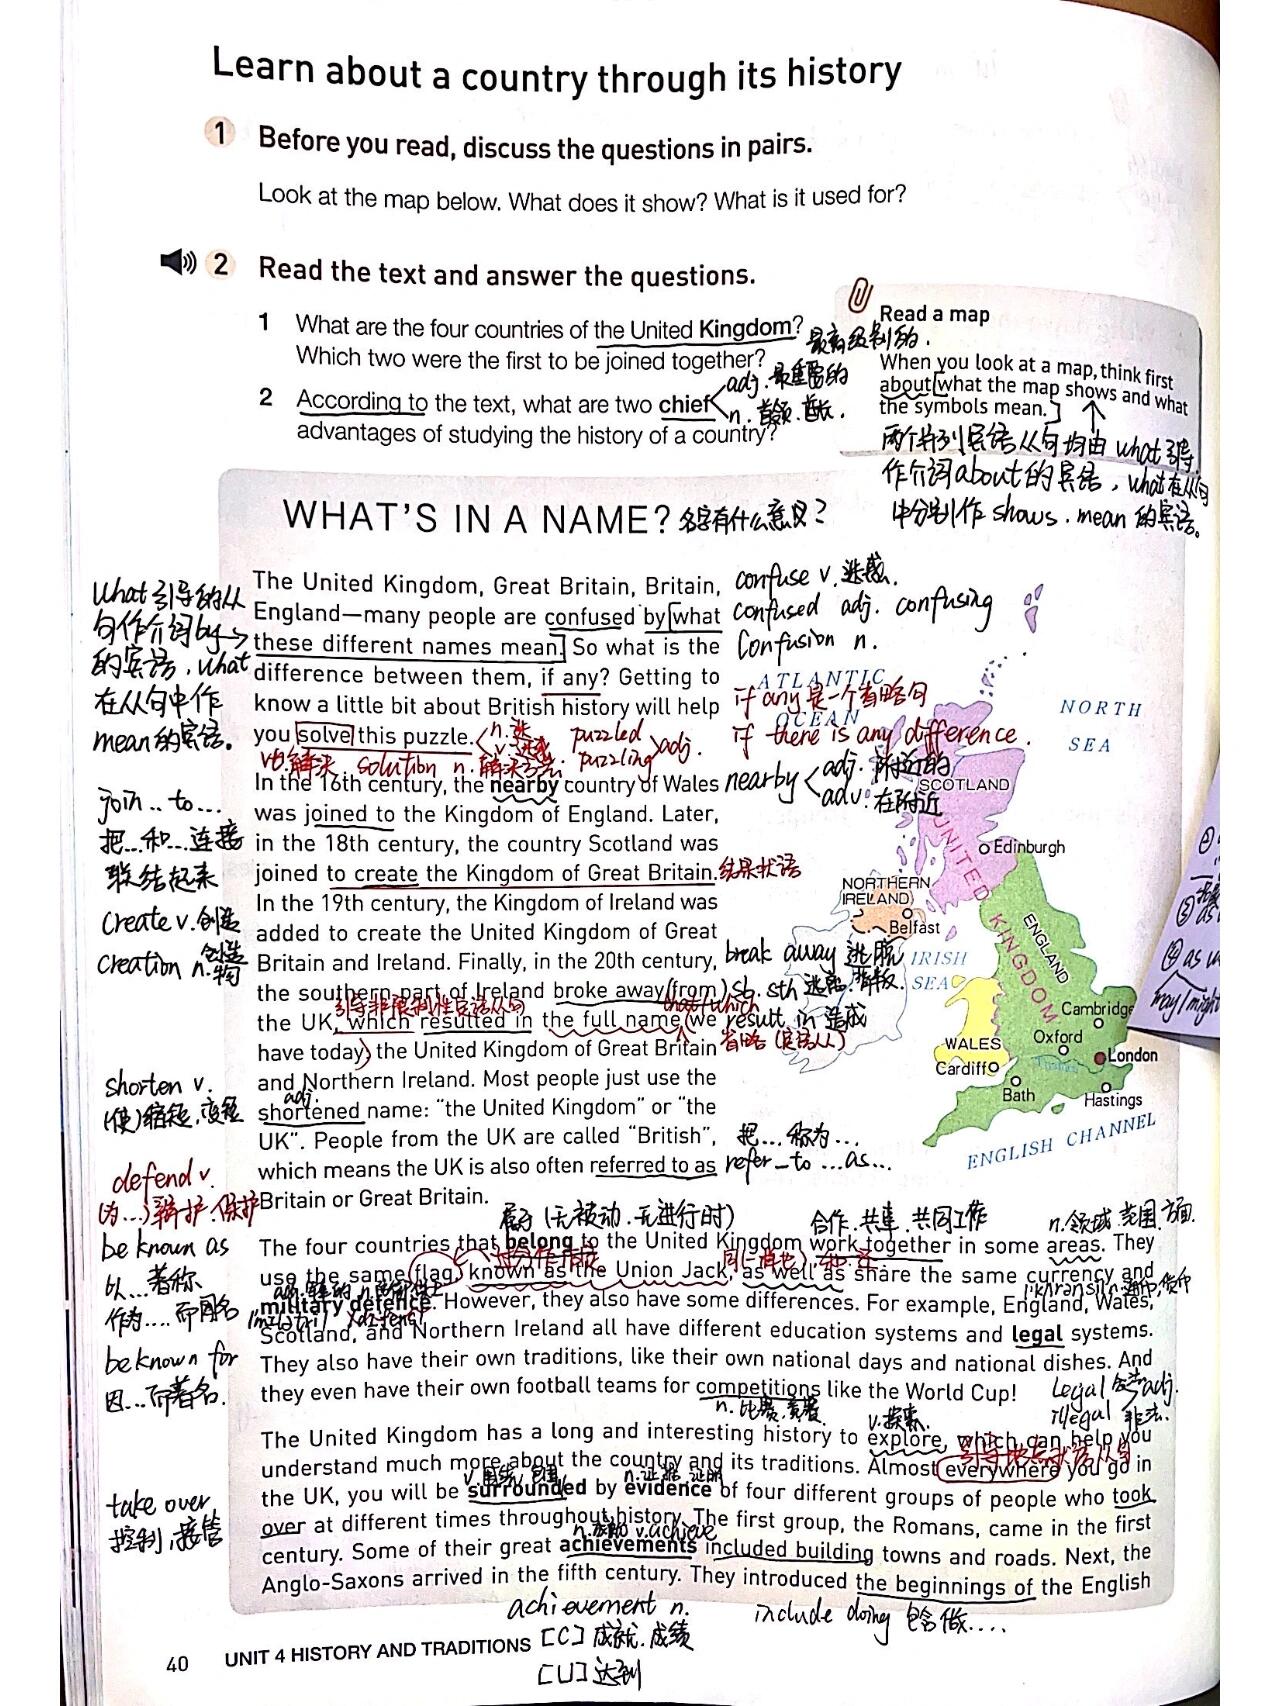 Learn about a country through its history
1 Before you read, discuss the questions in pairs.
Look at the map below. What does it show? What is it used for?
2 Read the text and answer the questions.
1 What are the four countries of the United Kingdom?
Which two were the first to be joined together?
最高级别的.
2 According to the text, what are two chief
adj. 最重要的
n. 首领. 酋长.
advantages of studying the history of a country?
Read a map
When you look at a map, think first
about what the map shows and what
the symbols mean.
两个并列宾语从句均由 what 引导.
作介词about的宾语, what在从句
中分别作 shows. mean 的宾语。
WHAT'S IN A NAME? 名字有什么意义?
The United Kingdom, Great Britain, Britain,
England—many people are confused by what
these different names mean. So what is the
difference between them, if any? Getting to
know a little bit about British history will help
you solve this puzzle.
n. 谜
v. 迷惑
puzzled
puzzling
adj.
vt. 解决 solution n. 解决方法.
In the 16th century, the nearby country of Wales
was joined to the Kingdom of England. Later,
in the 18th century, the country Scotland was
joined to create the Kingdom of Great Britain.
结果状语
In the 19th century, the Kingdom of Ireland was
added to create the United Kingdom of Great
Britain and Ireland. Finally, in the 20th century,
the southern part of Ireland broke away (from)
引导非限制性定语从句
that/which
the UK, which resulted in the full name (we
have today) the United Kingdom of Great Britain
省略 (定语从)
and Northern Ireland. Most people just use the
adj.
shortened name: "the United Kingdom" or "the
UK". People from the UK are called "British",
which means the UK is also often referred to as
Britain or Great Britain.
What引导的从
句作介词by
的宾语, what
在从句中作
mean的宾语。
join .. to ...
把...和...连接
联结起来
create v. 创造
creation n. 创造
物
shorten v.
(使)缩短. 变短
defend v.
(为...)辩护. 保护
be known as
以...著称.
作为.... 而闻名
be known for
因...而著名.
take over
控制, 接管
confuse v. 迷惑.
confused adj. confusing
Confusion n.
if any 是一个省略句
if there is any difference.
nearby
adj. 附近的
adv. 在附近
break away 逃脱
sb. sth 逃离. 背叛.
result in 造成
把... 称为...
refer _ to ... as...
ATLANTIC
OCEAN
NORTH
SEA
SCOTLAND
Edinburgh
UNITED KINGDOM
NORTHERN
IRELAND
Belfast
IRISH
SEA
ENGLAND
Cambridge
WALES
Oxford
London
Cardiff
Bath
Hastings
ENGLISH CHANNEL
属于 (无被动. 无进行时)
合作. 共事. 共同工作
n. 领域. 范围. 方面.
The four countries that belong to the United Kingdom work together in some areas. They
use the same flag, known as the Union Jack, as well as share the same currency and
military defence. However, they also have some differences. For example, England, Wales,
Scotland, and Northern Ireland all have different education systems and legal systems.
They also have their own traditions, like their own national days and national dishes. And
they even have their own football teams for competitions like the World Cup!
n. 比赛. 竞赛.
legal 合法 adj.
illegal 非法.
v. 探索.
The United Kingdom has a long and interesting history to explore, which can help you
understand much more about the country and its traditions. Almost everywhere you go in
引导地点状语从句
v. 围绕. 包围
n. 证据. 证明
the UK, you will be surrounded by evidence of four different groups of people who took
over at different times throughout history. The first group, the Romans, came in the first
n. 成就 v. achieve
century. Some of their great achievements included building towns and roads. Next, the
Anglo-Saxons arrived in the fifth century. They introduced the beginnings of the English
achievement n.
[C] 成就. 成绩
[U] 达到
include doing 包含做....
40 UNIT 4 HISTORY AND TRADITIONS